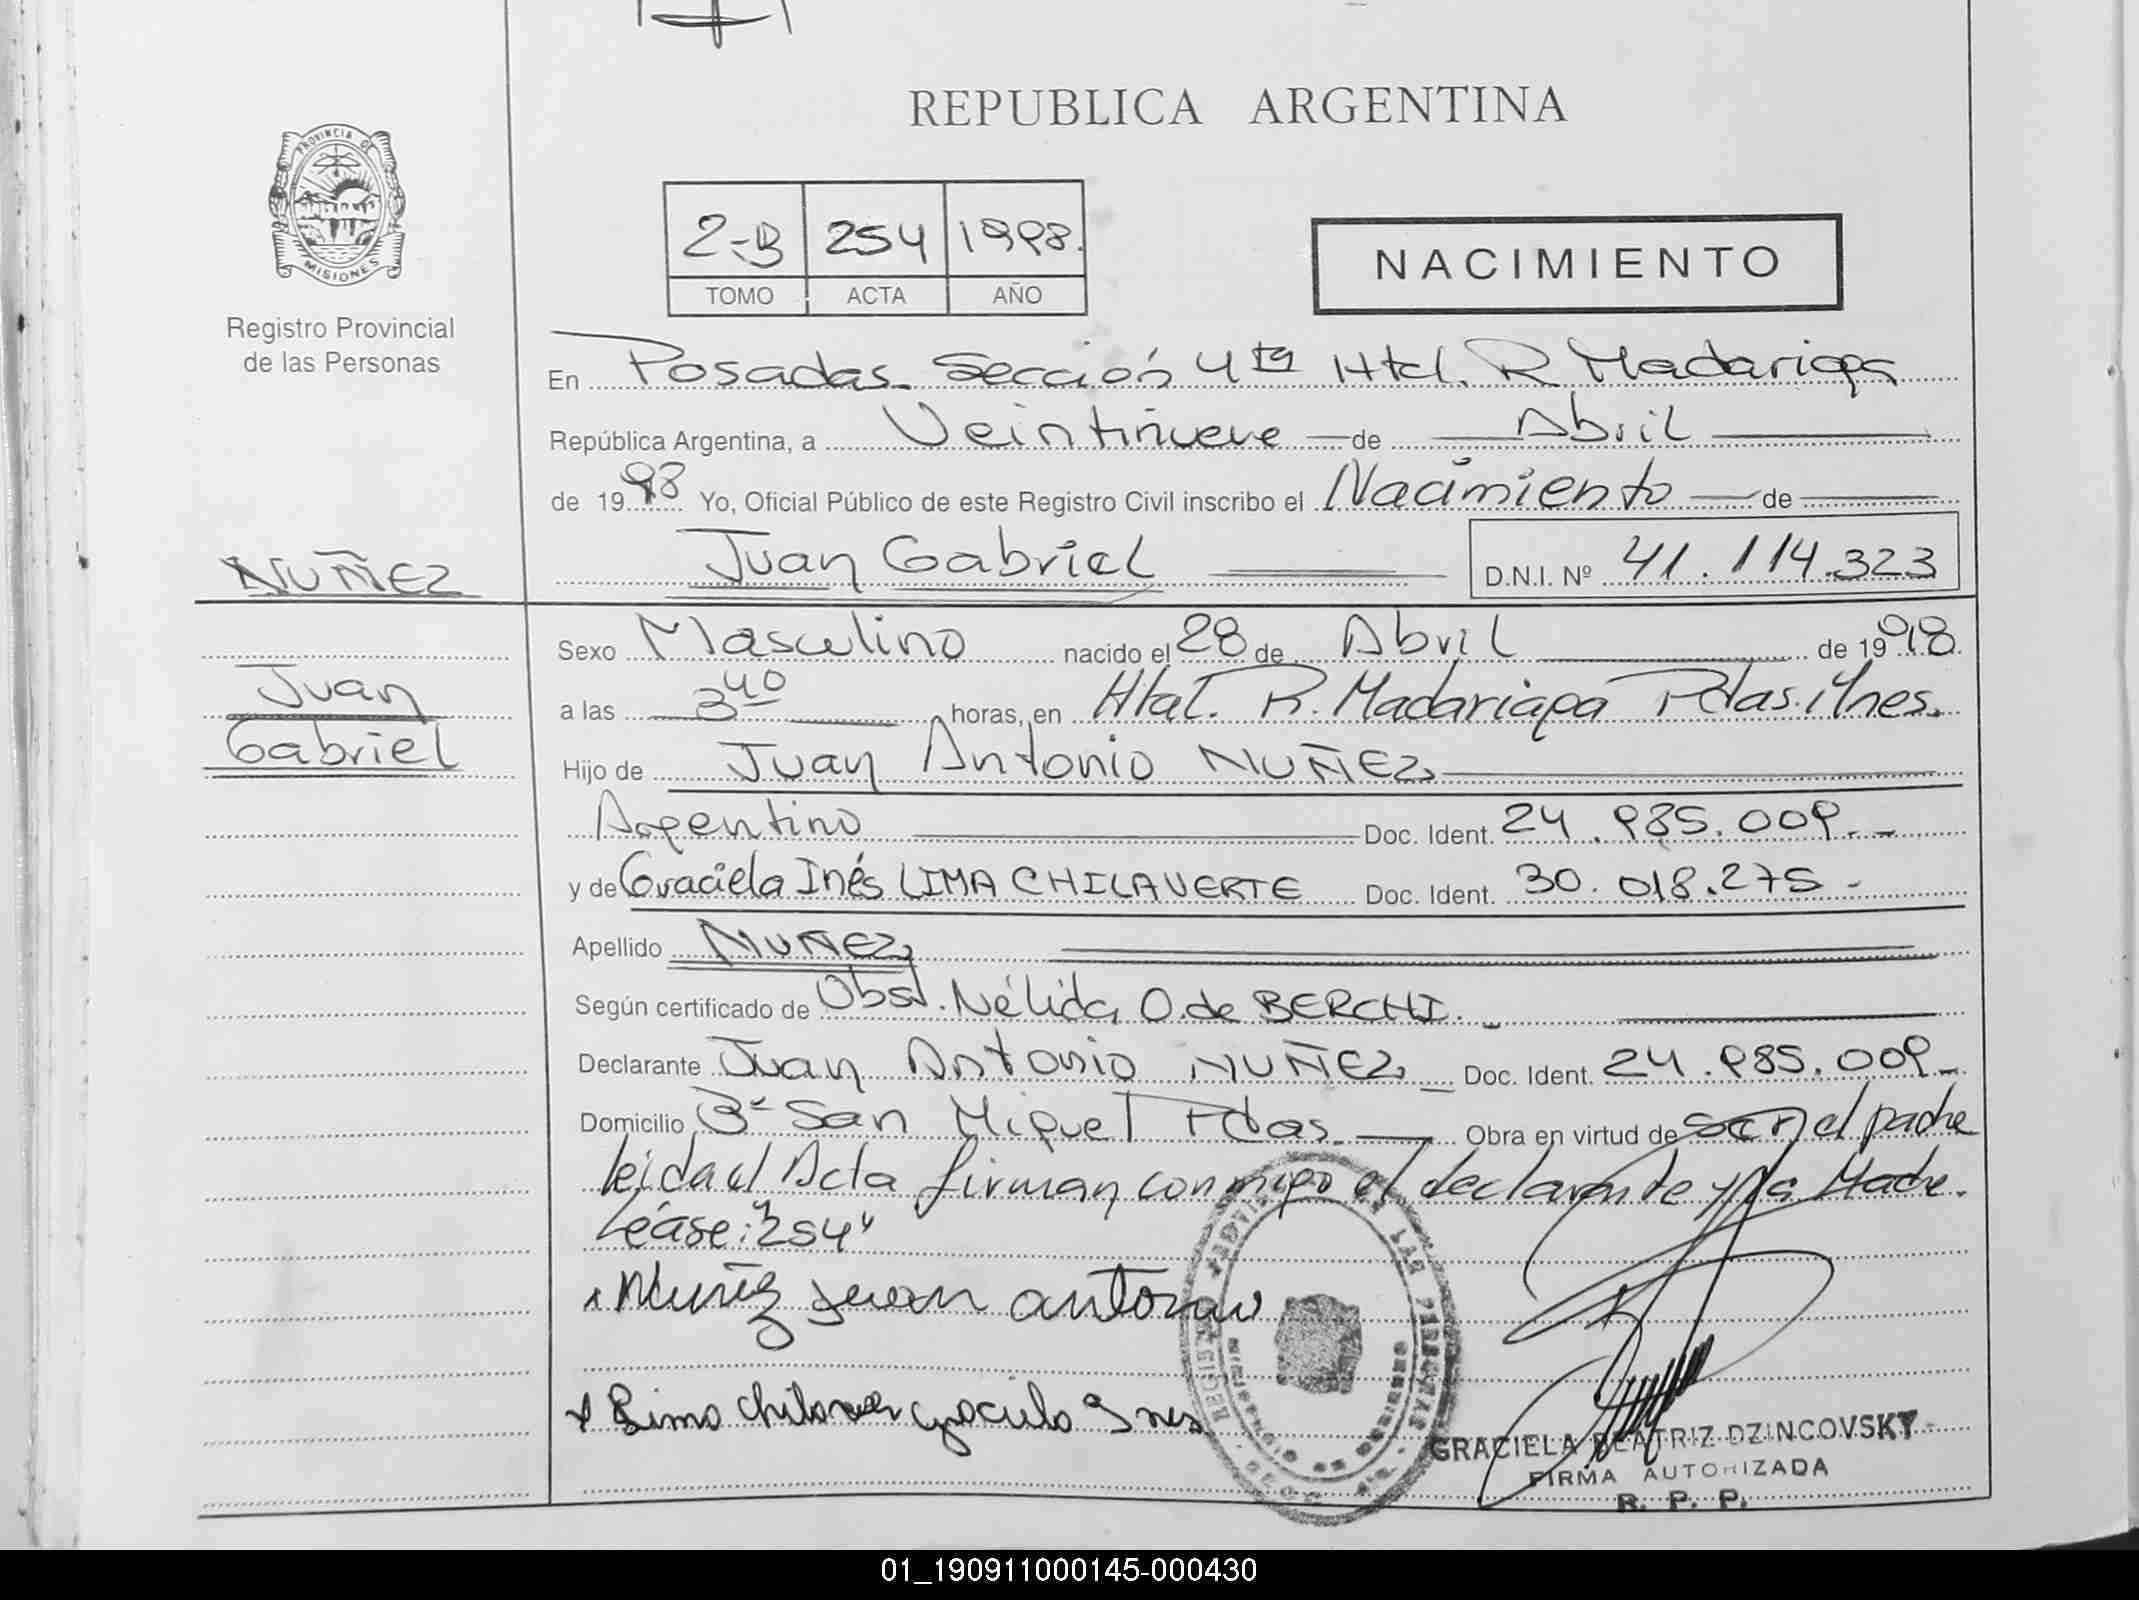 REPUBLICA ARGENTINA
PROVINCIA DE
MISIONES
Registro Provincial
de las Personas
2-B 254 1998.
TOMO ACTA AÑO
NACIMIENTO
En Posadas. Sección 4ta Htal. R Madariaga
República Argentina, a Veintinueve de Abril
de 1998 Yo, Oficial Público de este Registro Civil inscribo el Nacimiento de
NUÑEZ
Juan Gabriel D.N.I. Nº 41.114.323
Sexo Masculino nacido el 28 de Abril de 1998.
Juan
a las 3 40 horas, en Htal. R. Madariaga Pdas. Mnes.
Gabriel
Hijo de Juan Antonio NUÑEZ
Argentino Doc. Ident. 24.985.009.
y de Graciela Inés LIMA CHILAVERTE Doc. Ident. 30.018.275.
Apellido NUÑEZ
Según certificado de Obst. Nélida O. de BERCHI.
Declarante Juan Antonio NUÑEZ Doc. Ident. 24.985.009
Domicilio Bº San Miguel Pdas. Obra en virtud de ser el padre
leida el Acta firman conmigo el declarante y la Madre.
Léase: "254"
Nuñez Juan antonio
Lima graciela Ines
GRACIELA BEATRIZ DZINCOVSKY
FIRMA AUTORIZADA
R. P. P.
01_190911000145-000430